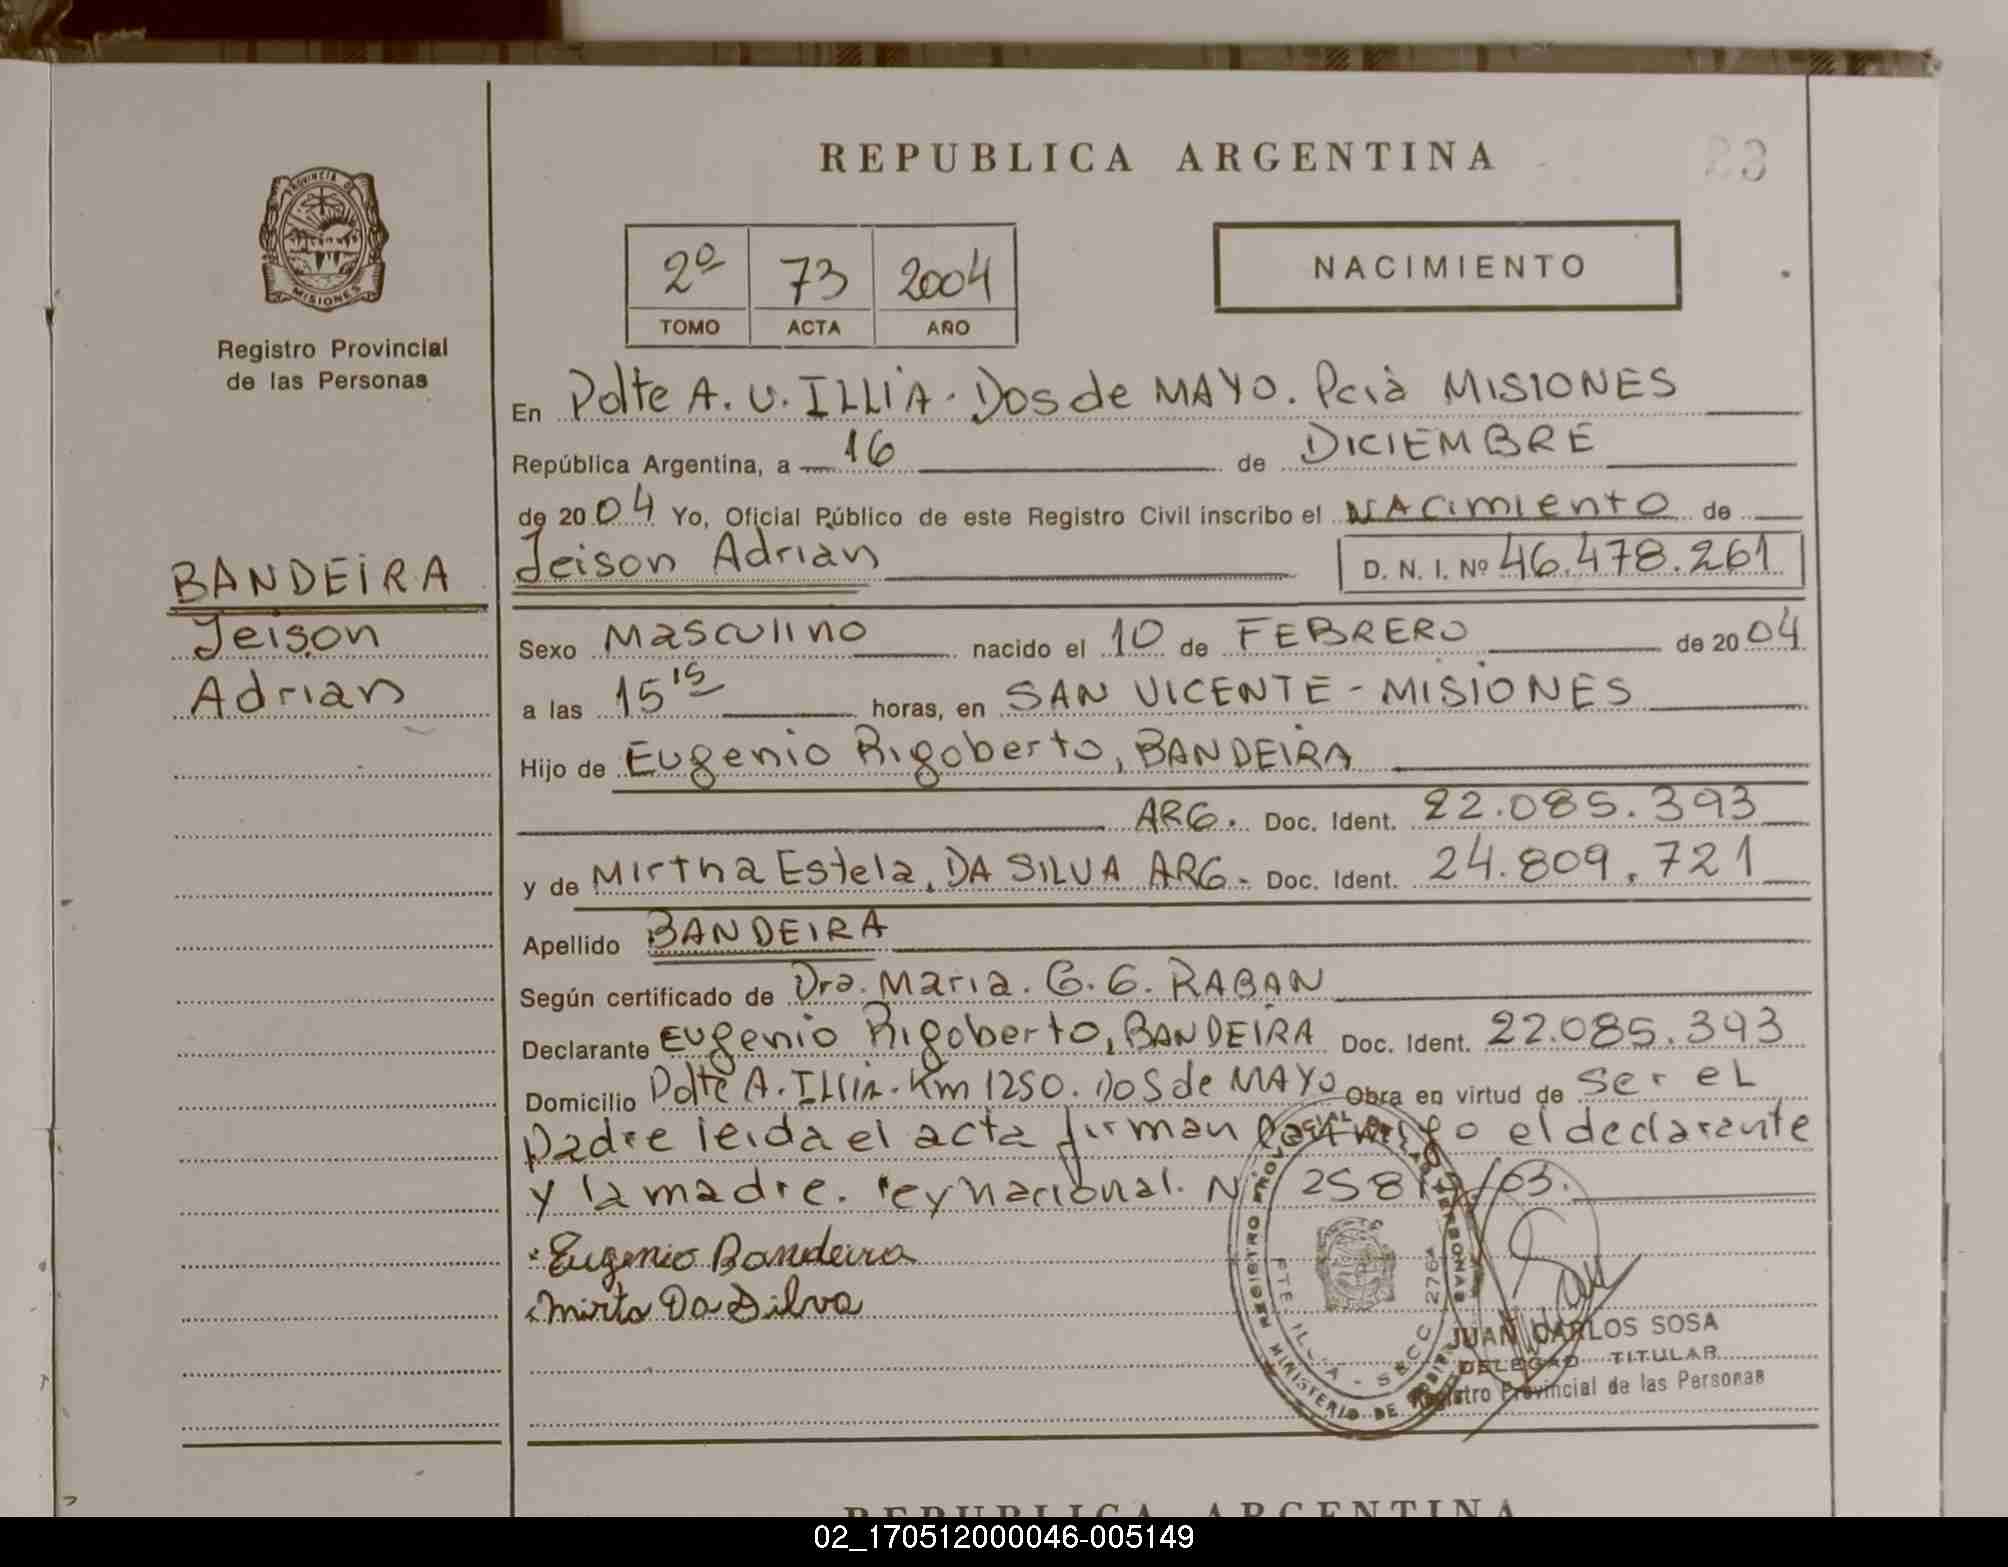 REPUBLICA ARGENTINA
23
PROVINCIA DE
MISIONES
Registro Provincial
de las Personas
2º 73 2004
TOMO ACTA AÑO
NACIMIENTO
En Pdte A. U. ILLIA. Dos de MAYO. Pcia MISIONES
República Argentina, a 16 de DICIEMBRE
de 2004 Yo, Oficial Público de este Registro Civil inscribo el NACimiento de
Jeison Adrian D. N. I. Nº 46.478.261
BANDEIRA
Jeison
Adrian
Sexo Masculino nacido el 10 de FEBRERO de 2004
a las 15 15 horas, en SAN VICENTE - MISIONES
Hijo de Eugenio Rigoberto, BANDEIRA
ARG. Doc. Ident. 22.085.393
y de Mirtha Estela, DA SILVA ARG. Doc. Ident. 24.809.721
Apellido BANDEIRA
Según certificado de Dra. Maria. G. G. RABAN
Declarante Eugenio Rigoberto, BANDEIRA Doc. Ident. 22.085.393
Domicilio Pdte A. ILLia. Km 1250. Dos de MAYO Obra en virtud de Ser el
padre leida el acta firman conmigo el declarante
y la madre. ley nacional. N 25819/03.
Eugenio Bandeira
Mirta Da Silva
REGISTRO PROVINCIAL DE LAS PERSONAS
MINISTERIO DE
PTE ILLIA - SECC 276
JUAN CARLOS SOSA
DELEGADO TITULAR
Registro Provincial de las Personas
REPUBLICA ARGENTINA
02_170512000046-005149